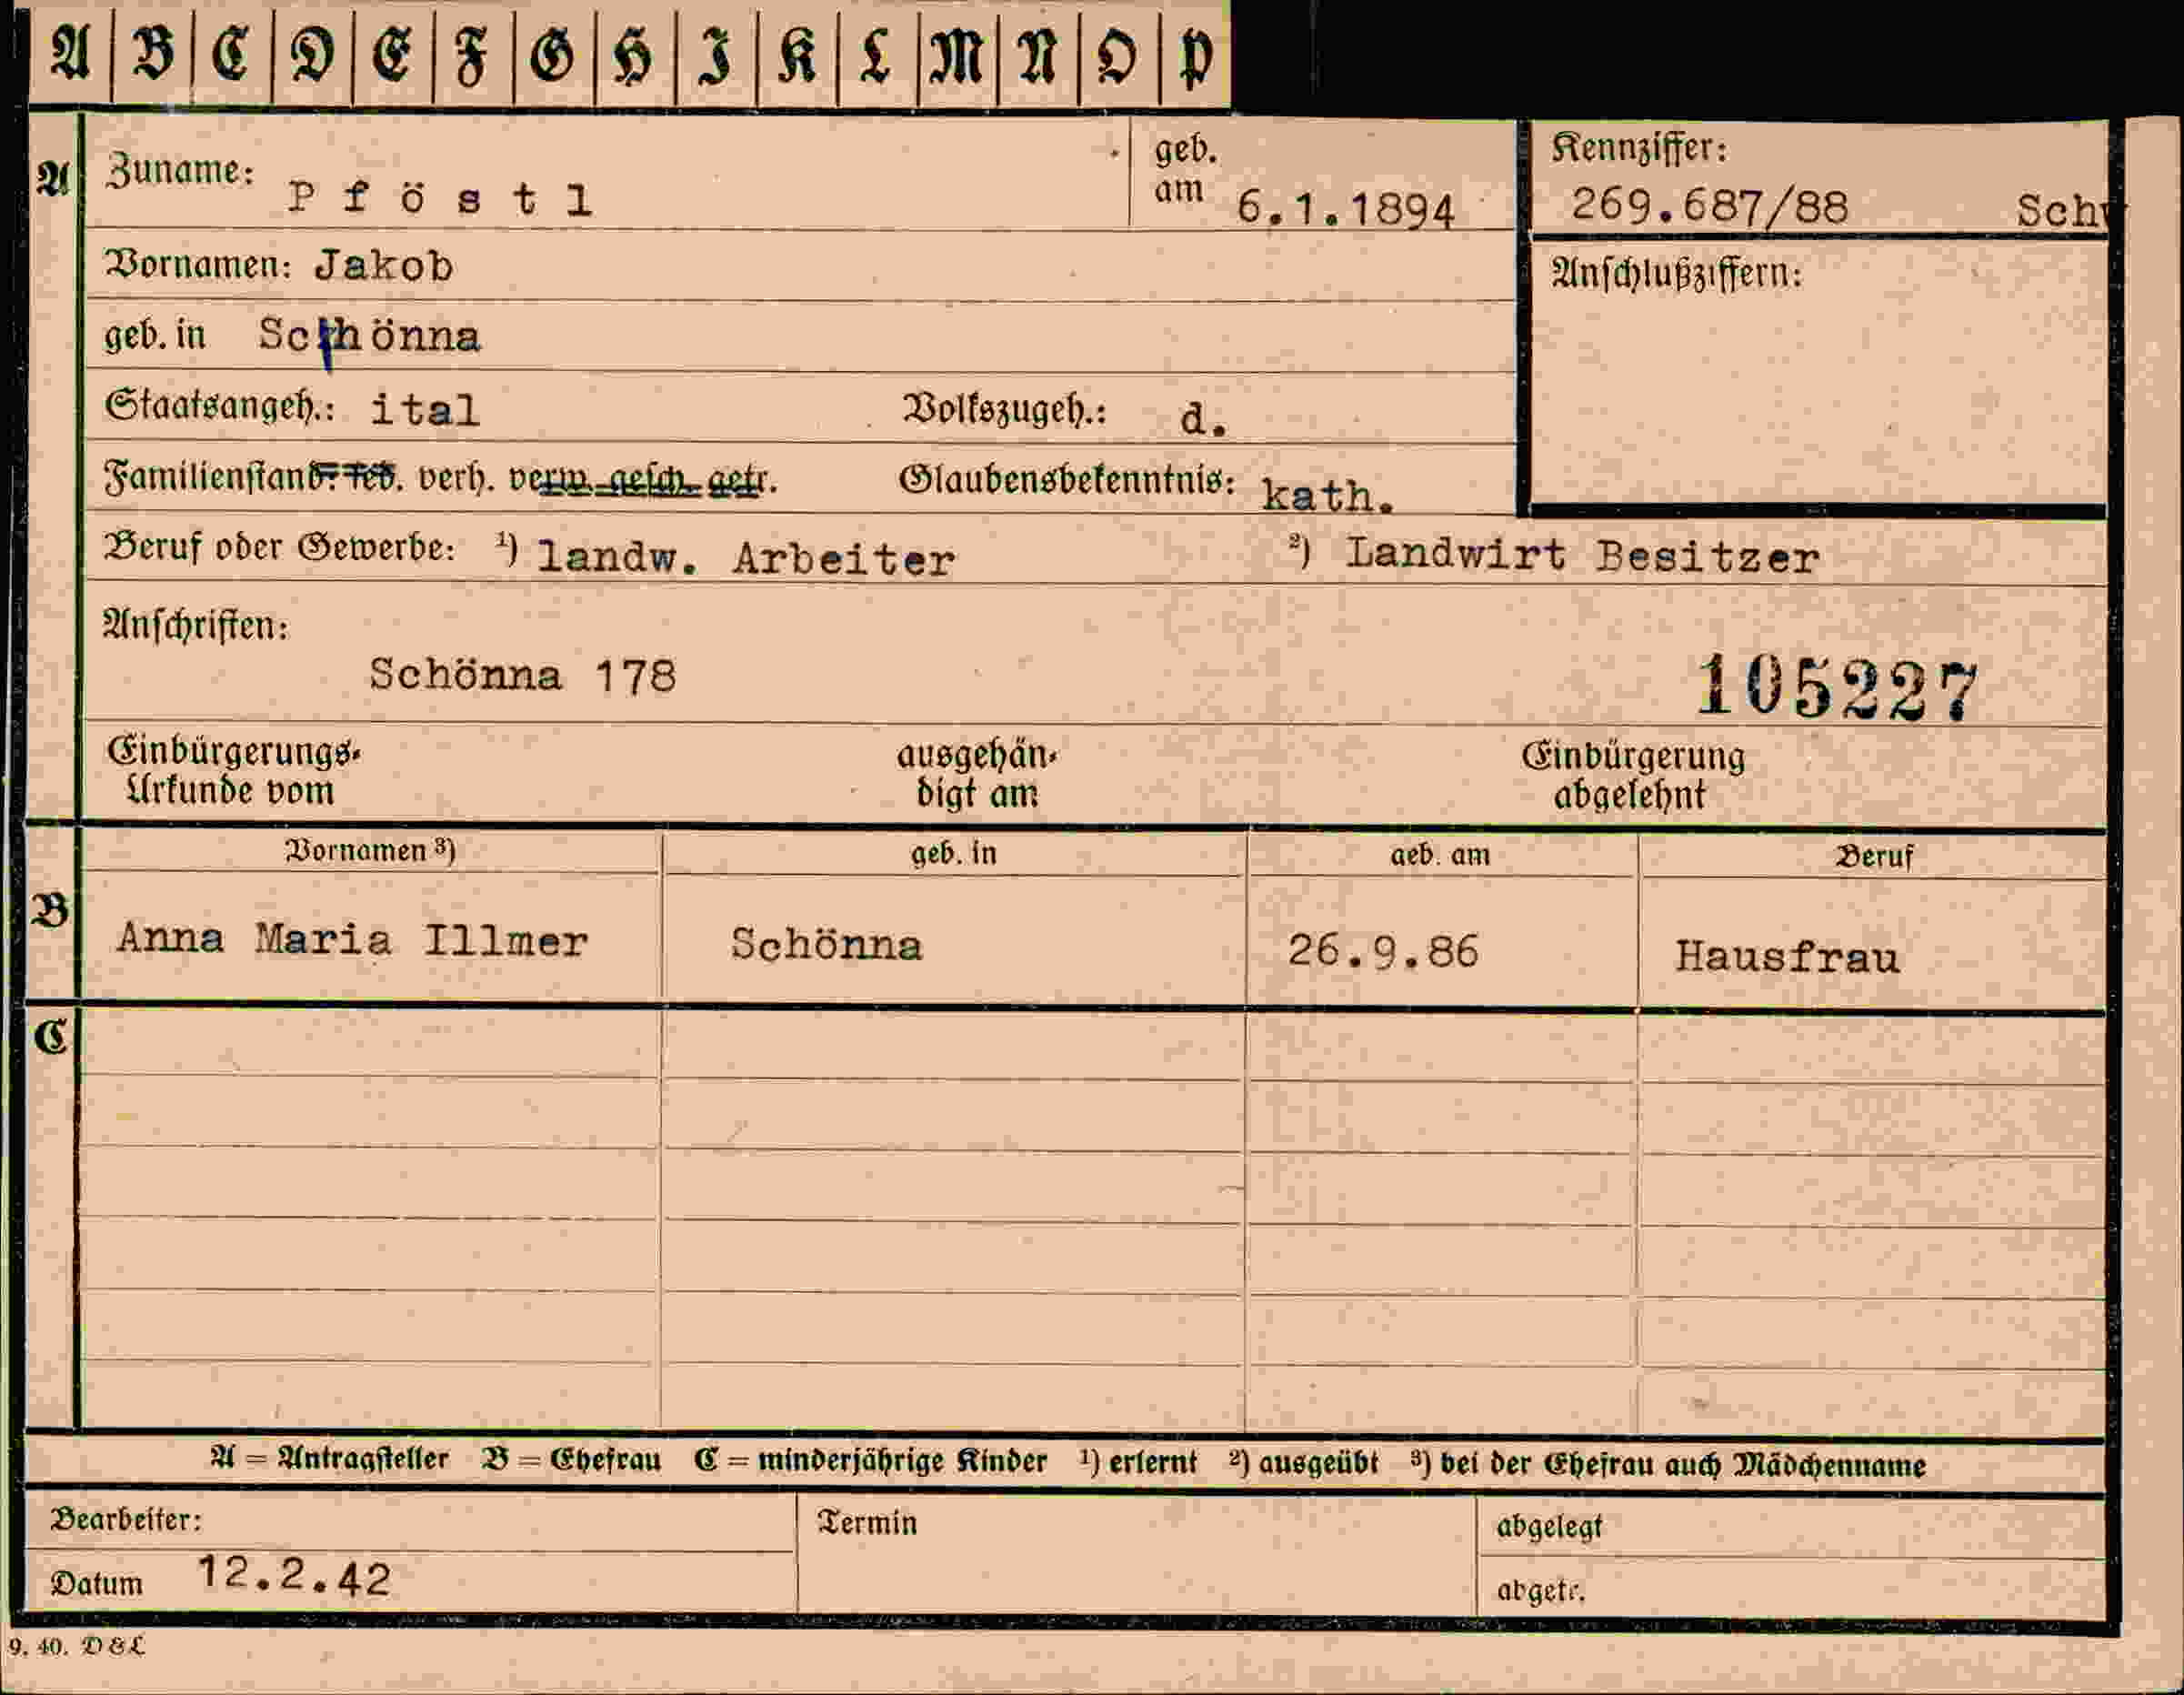 A B C D E F G H I K L M N O P
A Zuname: Pföstl geb. am 6.1.1894 Kennziffer: 269.687/88 Sch
Vornamen: Jakob Anschlußziffern:
geb. in Schönna
Staatsangeh.: ital Volkszugeh.: d.
Familienstand: led. verh. verw. gesch. getr. Glaubensbekenntnis: kath.
Beruf oder Gewerbe: ¹) landw. Arbeiter ²) Landwirt Besitzer
Anschriften:
Schönna 178 105227
Einbürgerungs- ausgehän- Einbürgerung
Urkunde vom digt am abgelehnt
Vornamen ³) geb. in geb. am Beruf
B Anna Maria Illmer Schönna 26.9.86 Hausfrau
C
A = Antragsteller B = Ehefrau C = minderjährige Kinder ¹) erlernt ²) ausgeübt ³) bei der Ehefrau auch Mädchenname
Bearbeiter: Termin abgelegt
Datum 12.2.42 abgetr.
9. 40. D & L